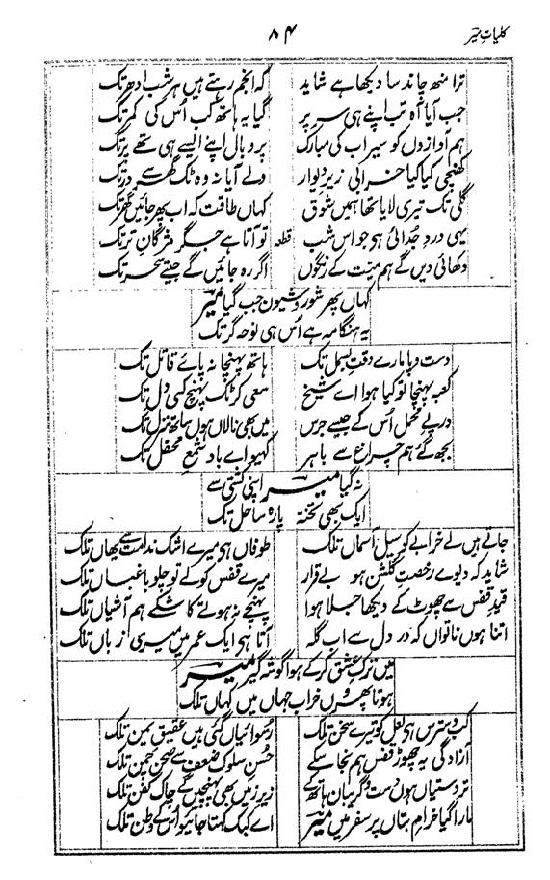 کلیاتِ میر
۸۴
ترا منھ چاند سا دیکھا ہے شاید کہ انجم رہتے ہیں ہر شب ادھر تک
جب آیا آہ تب اپنے ہی سر پر گیا یہ ہاتھ کب اُس کی کمر تک
ہم آوازوں کو سیر اب کی مبارک پر و بال اپنے ایسے ہی تھے پر تک
کھنچی کیا کیا خرابی زیرِ دیوار ولے آیا نہ وہ ٹک گھر سے در تک
گلی تک تیری لایا تھا ہمیں شوق کہاں طاقت کہ اب پھر جائیں گھر تک
یہی دردِ جدائی ہو جو اس شب قطعہ تو آتا ہے جگر مژگانِ تر تک
دکھائی دیں گے ہم میت کے رنگوں اگر رہ جائیں گے جیتے سحر تک
کہاں پھر شور و شیون جب گیا میرؔ
یہ ہنگامہ ہے اُس ہی نوحہ گر تک
دست و پا مارے وقتِ بسمل تک ہاتھ پہنچا نہ پائے قاتل تک
کعبہ پہنچا تو کیا ہوا اے شیخ سعی کر ٹک پہنچ کسی دل تک
درپے محمل اُس کے جیسے جرس میں بھی نالاں ہوں ساتھ منزل تک
بجھ گئے ہم چراغ سے باہر کہیو اے باد شمعِ محفل تک
نہ گیا میرؔ اپنی کشتی سے
ایک بھی تختہ پارہ ساحل تک
جاتے ہیں لے خرابی کو سیل آسماں تلک طوفاں ہی میرے اشک ندامت سے یھاں تلک
شاید کہ دیوے رخصتِ گلشن ہو بے قرار میرے قفس کو لے تو چلو باغباں تلک
قیدِ قفس سے چھوٹ کے دیکھا جلا ہوا پہنچے نہ ہوتے کاشکے ہم آشیاں تلک
اتنا ہوں ناتواں کہ درِ دل سے اب گلہ آتا ہی ایک عمر میں میری زباں تلک
میں ترکِ عشق کر کے ہوا گوشہ گیر میرؔ
ہوتا پھروں خراب جہاں میں کہاں تلک
کب دسترس ہی لعل کو تیرے سخن تلک رسوائیاں گئی ہیں عقیقِ یمن تلک
آزادگی یہ چھوڑ قفس ہم نہ جا سکے حسنِ سلوک ضعف سے صحنِ چمن تلک
تر دستیاں ہوں دست گریبان ہاتھ کے زیرِ زمیں بھی پہنچیں گے چاکِ کفن تلک
مارا گیا خرامِ بتاں پر سفر میں میرؔ اے کبک کہتا جائیو اُس کے وطن تلک